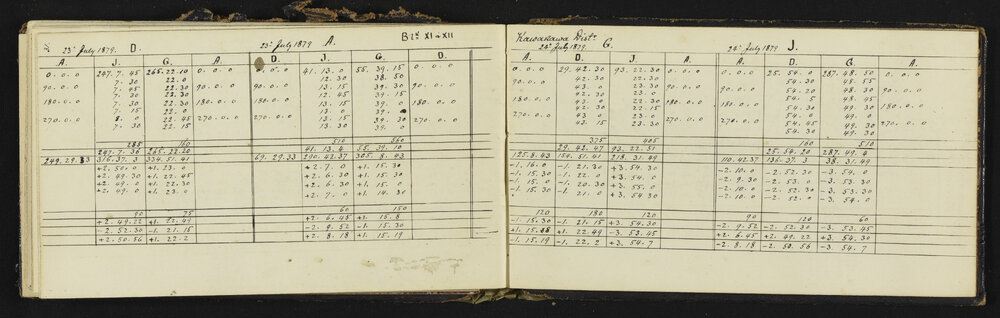 Blk XI & XII
Kawakawa Distr
23d July 1879. D. 23d July 1879 A.
24th July 1879. G. 24th July 1879 J.
A. J. G. A. D. J. G. D.
A. D. J. A. A. D. G. A.
0.0.0 247.7.45 265.22.10 0.0.0 0.0.0 41.13.0 55.39.15 0.0.0
7.30 22.0 12.30 38.50
90.0.0 7.45 22.30 90.0.0 13.15 39.30 90.0.0
7.30 22.30 12.45 39.15
180.0.0 7.30 22.30 180.0.0 13.15 39.0 180.0.0
7.15 22.0 13.0 39.0
270.0.0 8.0 22.45 270.0.0 13.15 39.30 270.0.0
7.30 22.15 13.30 39.0
285 160 510 560
247.7.36 265.22.20 41.13.4 55.39.10
249.29.33 316.37.3 334.51.41 69.29.33 290.42.37 305.8.43
+2.50.0 +1.23.0 +2.7.0 +1.15.30
+2.49.30 +1.22.45 +2.6.30 +1.15.30
+2.49.0 +1.22.30 +2.6.30 +1.15.0
+2.49.0 +1.23.0 +2.7. +1.14.30
90 75 60 150
+2.49.22 +1.22.49 +2.6.45 +1.15.8
-2.52.30 -1.21.15 -2.9.52 -1.15.30
+2.50.56 +1.22.2 +2.8.18 +1.15.19
0.0.0 29.42.30 93.22.30 0.0.0 25.54.0 287.48.50 0.0.0
42.30 23.0 54.30 48.55
90.0.0 43.0 22.30 90.0.0 54.20 48.30 90.0.0
42.30 23.0 54.5 48.45
180.0.0 43.0 22.30 180.0.0 54.30 49.30 180.0.0
42.30 23.0 54.0 49.0
270.0.0 43.0 23.0 270.0.0 54.45 49.30 270.0.0
42.15 23.30 54.30 49.30
375 405 160 510
29.42.47 93.22.51 25.54.20 287.49.4
125.8.43 154.51.41 218.31.49 110.42.37 136.37.3 38.31.49
-1.16.0 -1.21.30 +3.54.30 -2.10.0 -2.52.30 -3.54.0
-1.15.30 -1.22.0 +3.54.0 -2.9.30 -2.53.0 -3.53.30
-1.15.0 -1.20.30 +3.55.0 -2.10.0 -2.52.30 -3.53.30
-1.15.30 -1.21.0 +3.54.30 -2.10.0 -2.52.0 -3.54.0
120 180 120 90 120 60
-1.15.30 -1.21.15 +3.54.30 -2.9.52 -2.52.30 -3.53.45
+1.15.08 +1.22.49 -3.53.45 +2.6.45 +2.49.22 +3.54.30
-1.15.19 -1.22.2 +3.54.7 -2.8.18 -2.50.56 -3.54.7